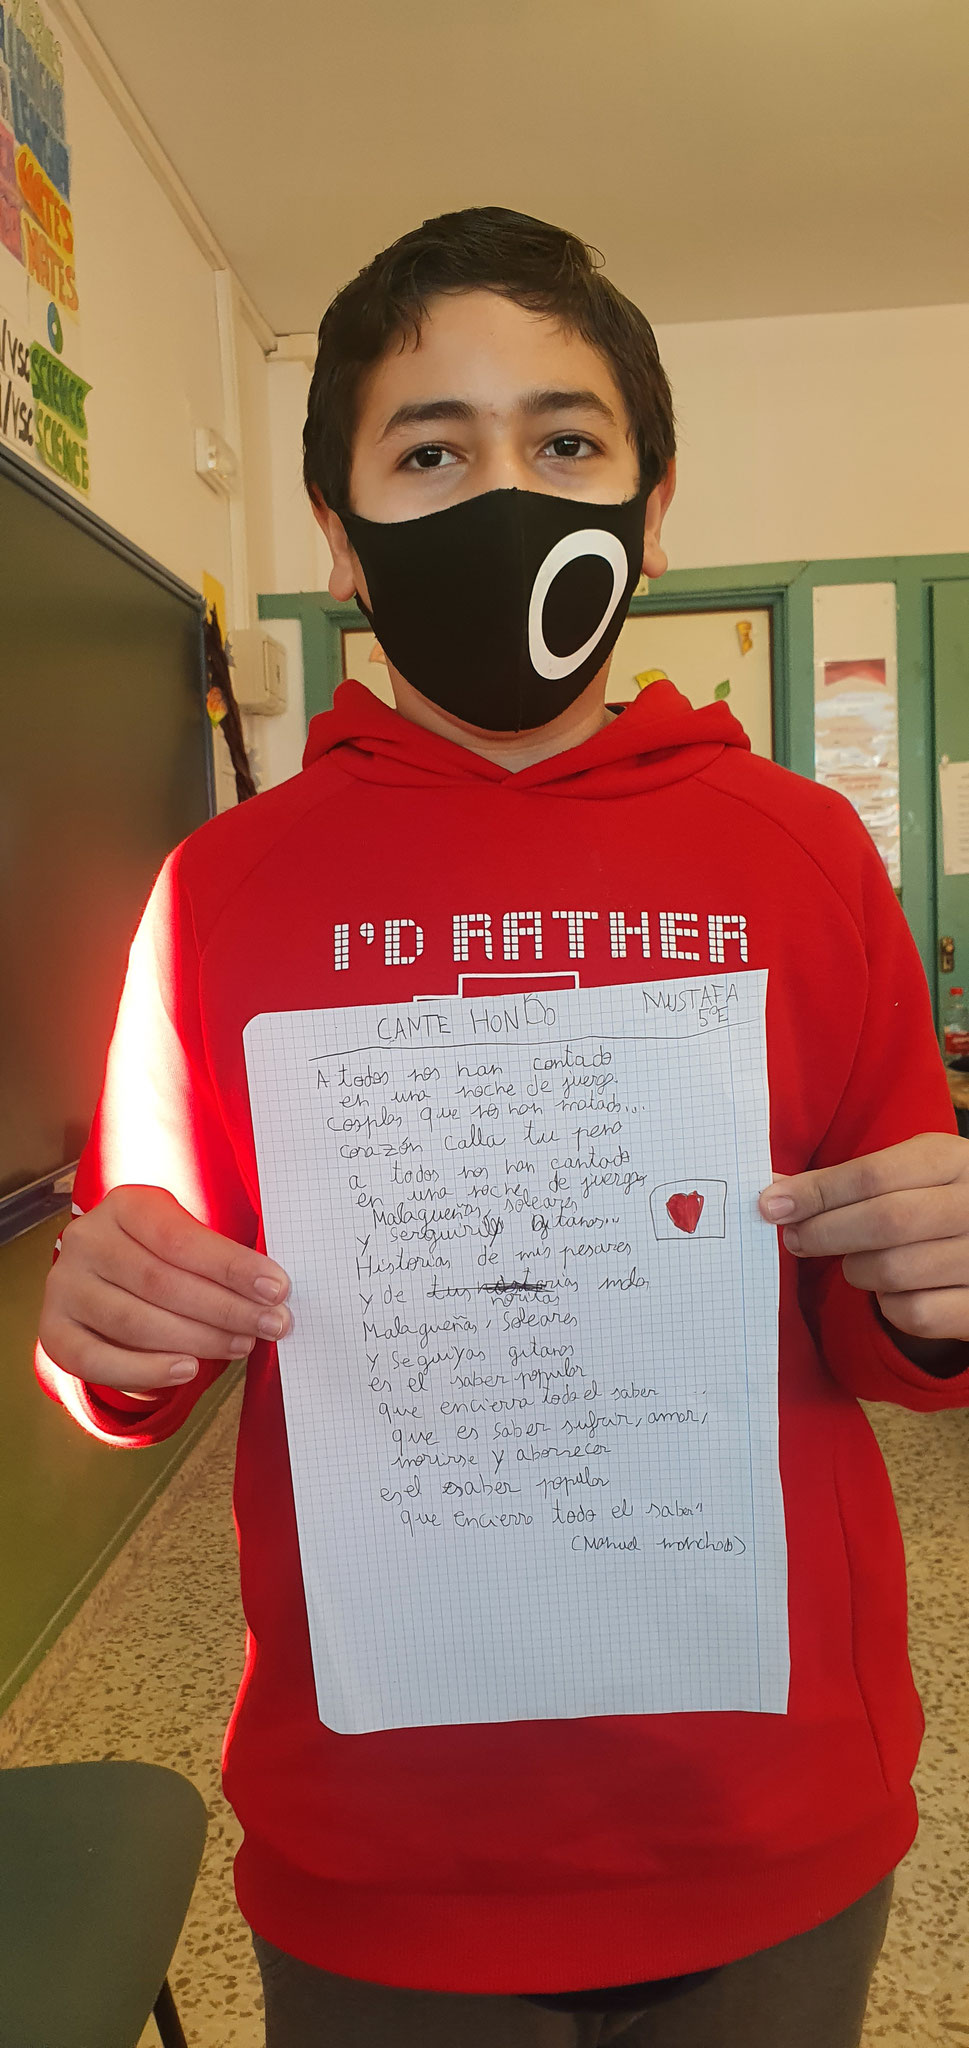 MATES
MATES
SCIENCE
SCIENCE
I'D RATHER
CANTE HONDO
MUSTAFA
5ºE
A todos nos han contado
en una noche de juerga
coplas que nos han matado...
corazón calla tu pena
a todos nos han cantado
en una noche de juerga
Malagueñas, soleares
y seguirillas gitanas...
Historias de mis pesares
y de tus
Malagueñas, soleares
y seguiyas gitanas
es el saber popular
que encierra todo el saber
que es saber sufrir, amar,
morirse y aborrecer
es el saber popular
que encierra todo el saber"
(Manuel Machado)